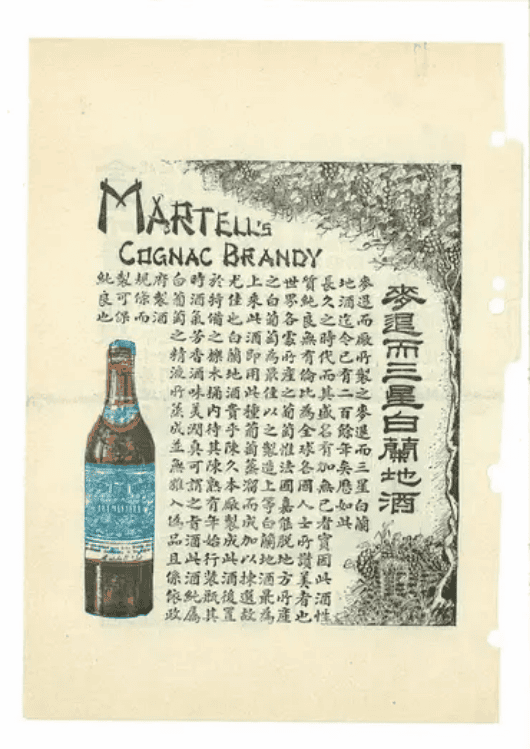 MARTELL'S
COGNAC BRANDY
麥退而三星白蘭地酒
麥退而廠所製之麥退而三星白蘭
地酒迄今已有二百餘年矣歷如此
長久之時代而其盛名有加無已者實因此酒性
質純良無有倫比為全球各國人士所讚美者也
世界各處所產之葡萄惟法國嘉能脫地方所產
之白葡萄為最佳以之製造上等白蘭地酒最為
上來此酒即用此種葡萄蒸溜而成加以揀選故
尤佳也白蘭地酒貴乎陳久本廠製成此酒後置
於特備之橡木桶內待其陳熟有年始行裝瓶其
時酒氣芳香酒味美潤真可謂之香酒此酒純屬
白葡萄之精液所蒸成並無雜入偽品且係依政
府製酒
規條而
製可保
純良也